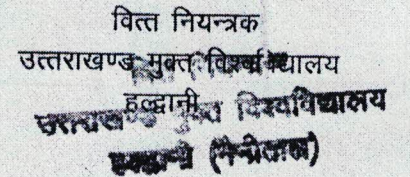 वित्त नियन्त्रक
उत्तराखण्ड मुक्त विश्वविद्यालय
हल्द्वानी
उत्तराखण्ड मुक्त विश्वविद्यालय
हल्द्वानी (नैनीताल)